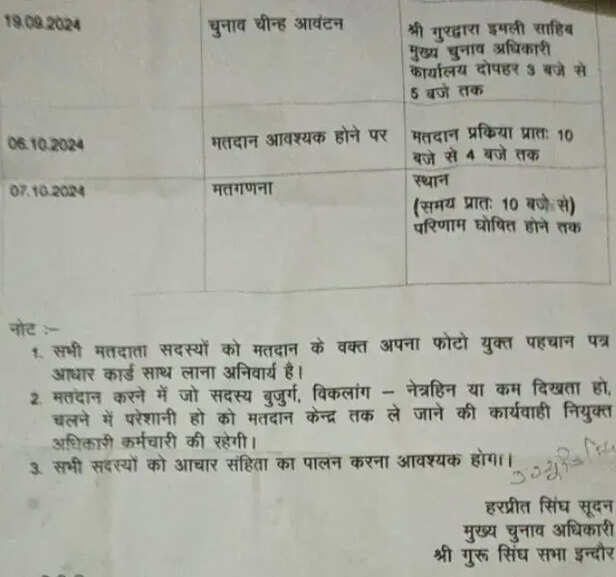 19.09.2024 चुनाव चीन्ह आवंटन श्री गुरद्वारा इमली साहिब
मुख्य चुनाव अधिकारी
कार्यालय दोपहर 3 बजे से
5 बजे तक
06.10.2024 मतदान आवश्यक होने पर मतदान प्रकिया प्रातः 10
बजे से 4 बजे तक
07.10.2024 मतगणना स्थान
(समय प्रातः 10 बजे से)
परिणाम घोषित होने तक
नोट :–
1. सभी मतदाता सदस्यों को मतदान के वक्त अपना फोटो युक्त पहचान पत्र
आधार कार्ड साथ लाना अनिवार्य है।
2. मतदान करने में जो सदस्य बुजुर्ग, विकलांग – नेत्रहिन या कम दिखता हो,
चलने में परेशानी हो को मतदान केन्द्र तक ले जाने की कार्यवाही नियुक्त
अधिकारी कर्मचारी की रहेगी।
3. सभी सदस्यों को आचार संहिता का पालन करना आवश्यक होगा।
हरप्रीत सिंघ सूदन
मुख्य चुनाव अधिकारी
श्री गुरू सिंघ सभा इन्दौर